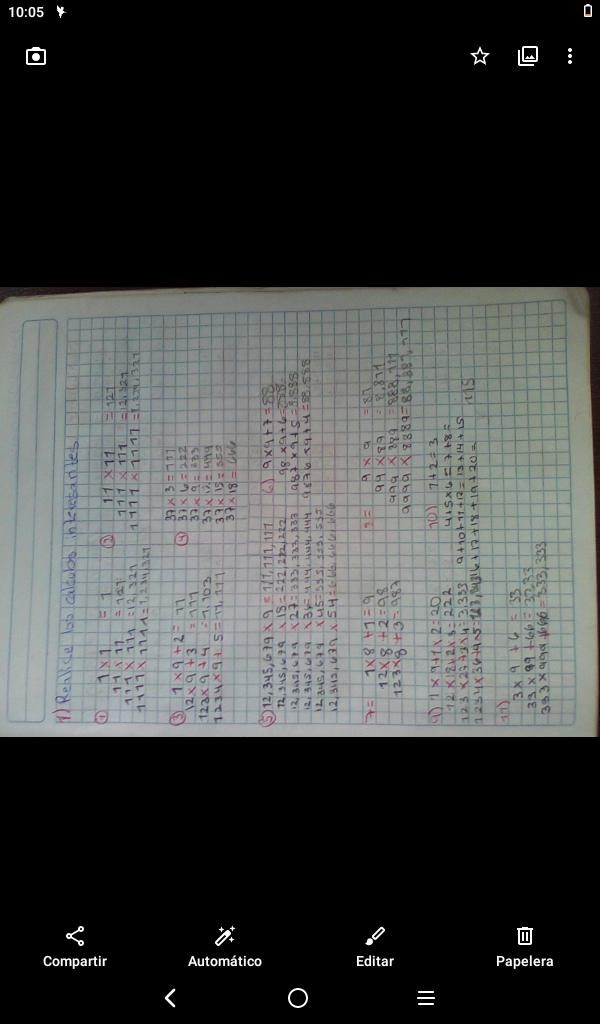 10:05
1) Realice los calculos interesantes
① 1 x 1 = 1
11 x 11 = 121
111 x 111 = 12,321
1111 x 1111 = 1,234,321
② 11 x 11 = 121
111 x 111 = 12,321
1111 x 1111 = 1,234,321
③ 1 x 9 + 2 = 11
12 x 9 + 3 = 111
123 x 9 + 4 = 1,103
1234 x 9 + 5 = 11,111
④ 37 x 3 = 111
37 x 6 = 222
37 x 9 = 333
37 x 12 = 444
37 x 15 = 555
37 x 18 = 666
⑤ 12,345,679 x 9 = 111,111,111
12,345,679 x 18 = 222,222,222
12,345,679 x 27 = 333,333,333
12,345,679 x 36 = 444,444,444
12,345,679 x 45 = 555,555,555
12,345,679 x 54 = 666,666,666
6) 9 x 9 + 7 = 88
98 x 9 + 6 = 888
987 x 9 + 5 = 8,888
9876 x 9 + 4 = 88,888
7= 1 x 8 + 1 = 9
12 x 8 + 2 = 98
123 x 8 + 3 = 987
9 x 9 = 81
99 x 89 = 8,811
999 x 889 = 888,111
9999 x 8889 = 88,881,111
9) 1 x 9 + 1 x 2 = 20
12 x 18 + 2 x 3 = 222
123 x 27 + 3 x 4 = 3,333
10) 1 + 2 = 3
4 + 5 + 6 = 7 + 8 =
9 + 10 + 11 + 12 = 13 + 14 + 15
16 + 17 + 18 + 19 + 20 =
11) 3 x 9 + 6 = 33
33 x 99 + 66 = 3333
333 x 999 + 666 = 333,333
Compartir
Automático
Editar
Papelera